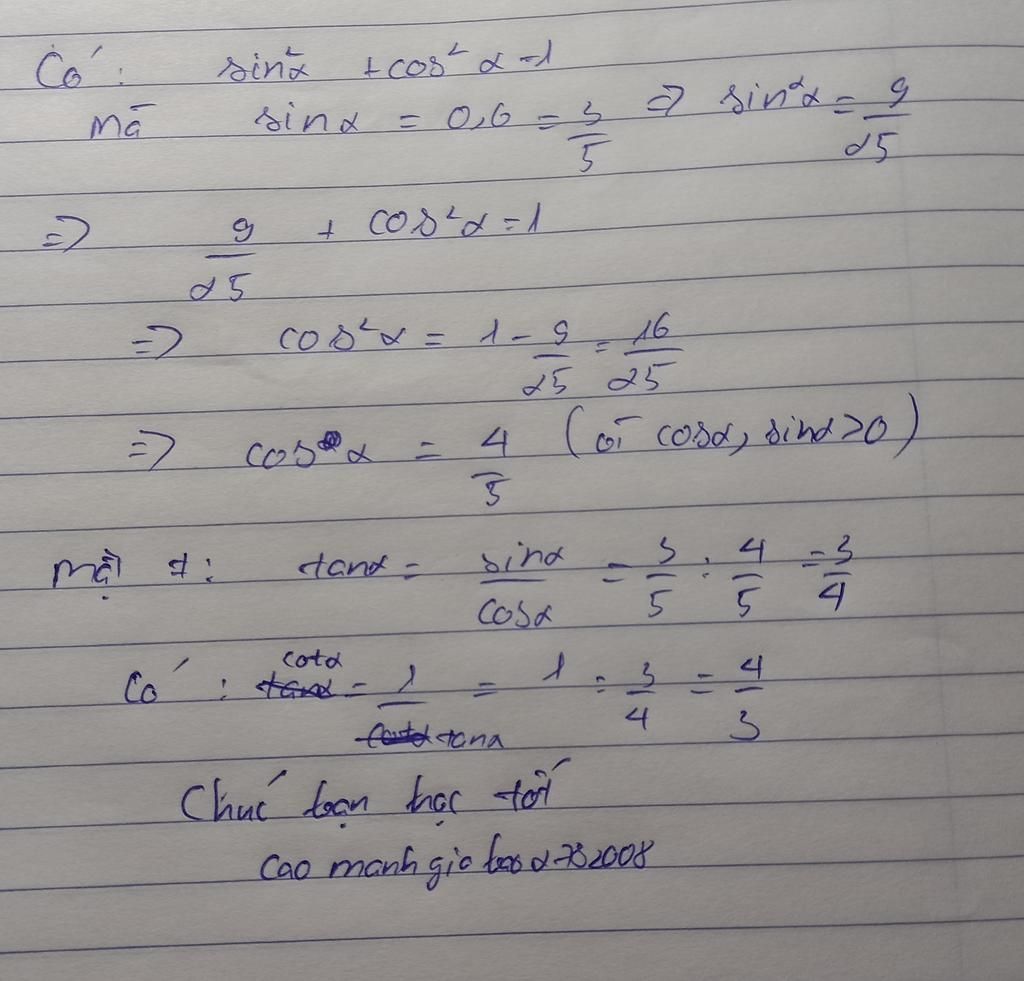 Có: sin²α + cos²α = 1
Mà sinα = 0,6 = 3/5 => sin²α = 9/25
=> 9/25 + cos²α = 1
=> cos²α = 1 - 9/25 = 16/25
=> cos α = 4/5 (vì cosα, sinα > 0)
Mặt ≠: tanα = sinα/cosα = 3/5 : 4/5 = 3/4
Có: cotα = 1/tanα = 1 : 3/4 = 4/3
Chúc bạn học tốt
cao manh gia bao 2008